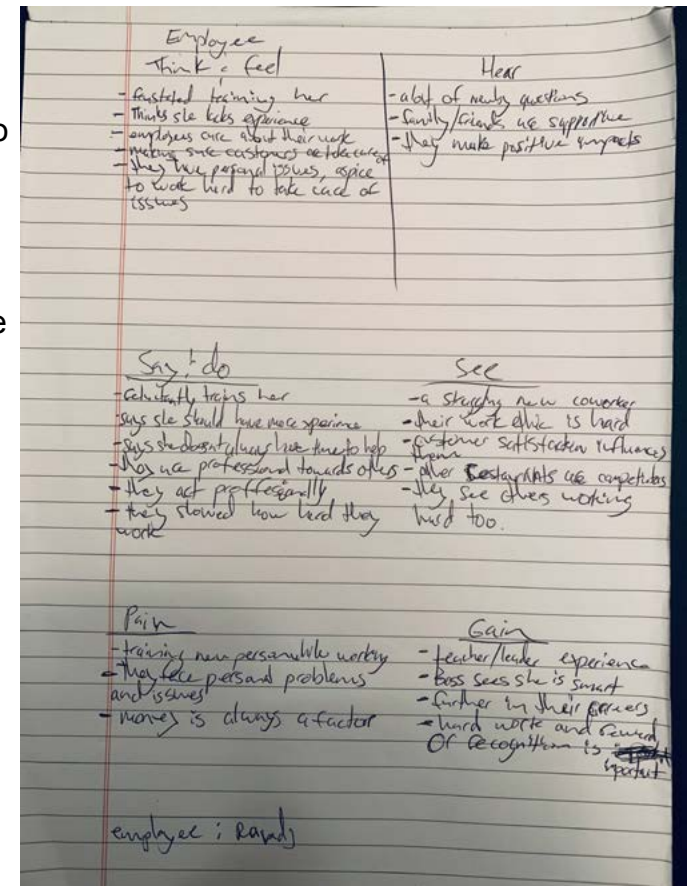 Employee
Think & feel
- frustrated training her
- Thinks she lacks experience
- employees care about their work
- making sure customers are taken care of
- they have personal issues, aspire
to work hard to take care of
issues
Hear
- a lot of newby questions
- family/friends are supportive
- they make positive impacts
Say & do
- reluctantly trains her
- says she should have more xperience
- says she doesn't always have time to help
- they are professional towards others
- they act proffesionally
- they showed how hard they
work
See
- a struggling new coworker
- their work ethic is hard
- customer satisfaction influences
them
- other restaurants are competitors
- they see others working
hard too.
Pain
- training new person while working
- they face personal problems
and issues
- money is always a factor
Gain
- teacher/leader experience
- Boss sees she is smart
- further in their careers
- hard work and reward
or recognition is
important
employee:
o
e